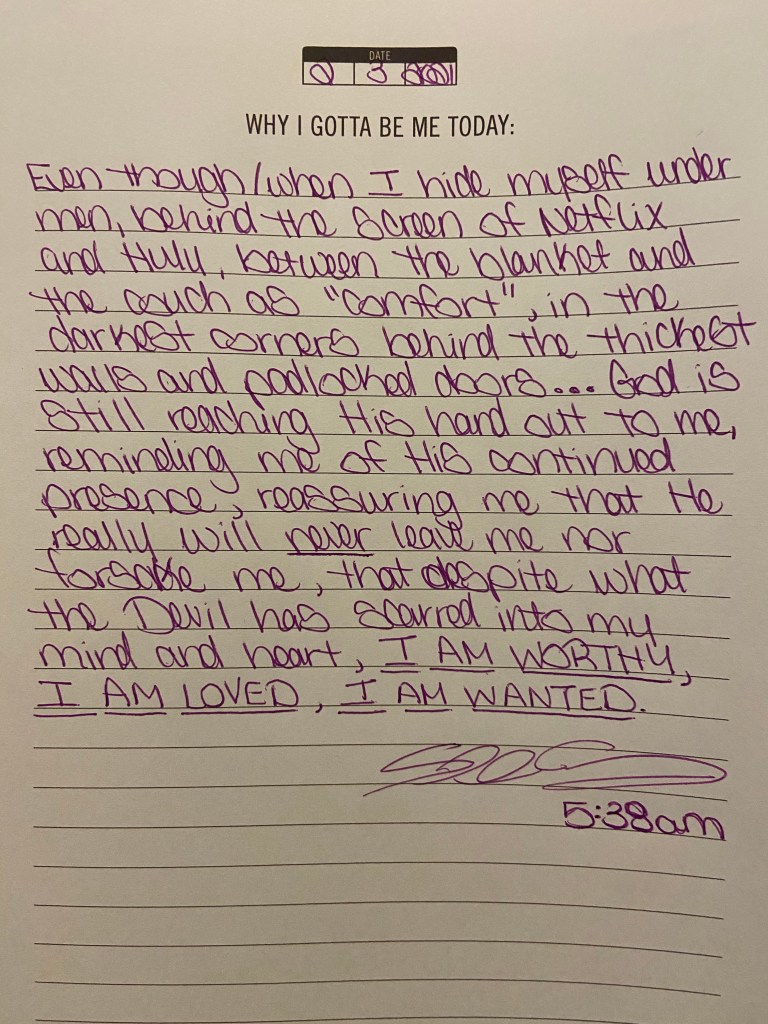 DATE
2 3 2021
WHY I GOTTA BE ME TODAY:
Even though/when I hide myself under
men, behind the screen of Netflix
and Hulu, between the blanket and
the couch as "comfort", in the
darkest corners behind the thickest
walls and padlocked doors... God is
still reaching His hand out to me,
reminding me of His continued
presence, reassuring me that He
really will never leave me nor
forsake me, that despite what
the Devil has scarred into my
mind and heart, I AM WORTHY,
I AM LOVED, I AM WANTED.
5:38am